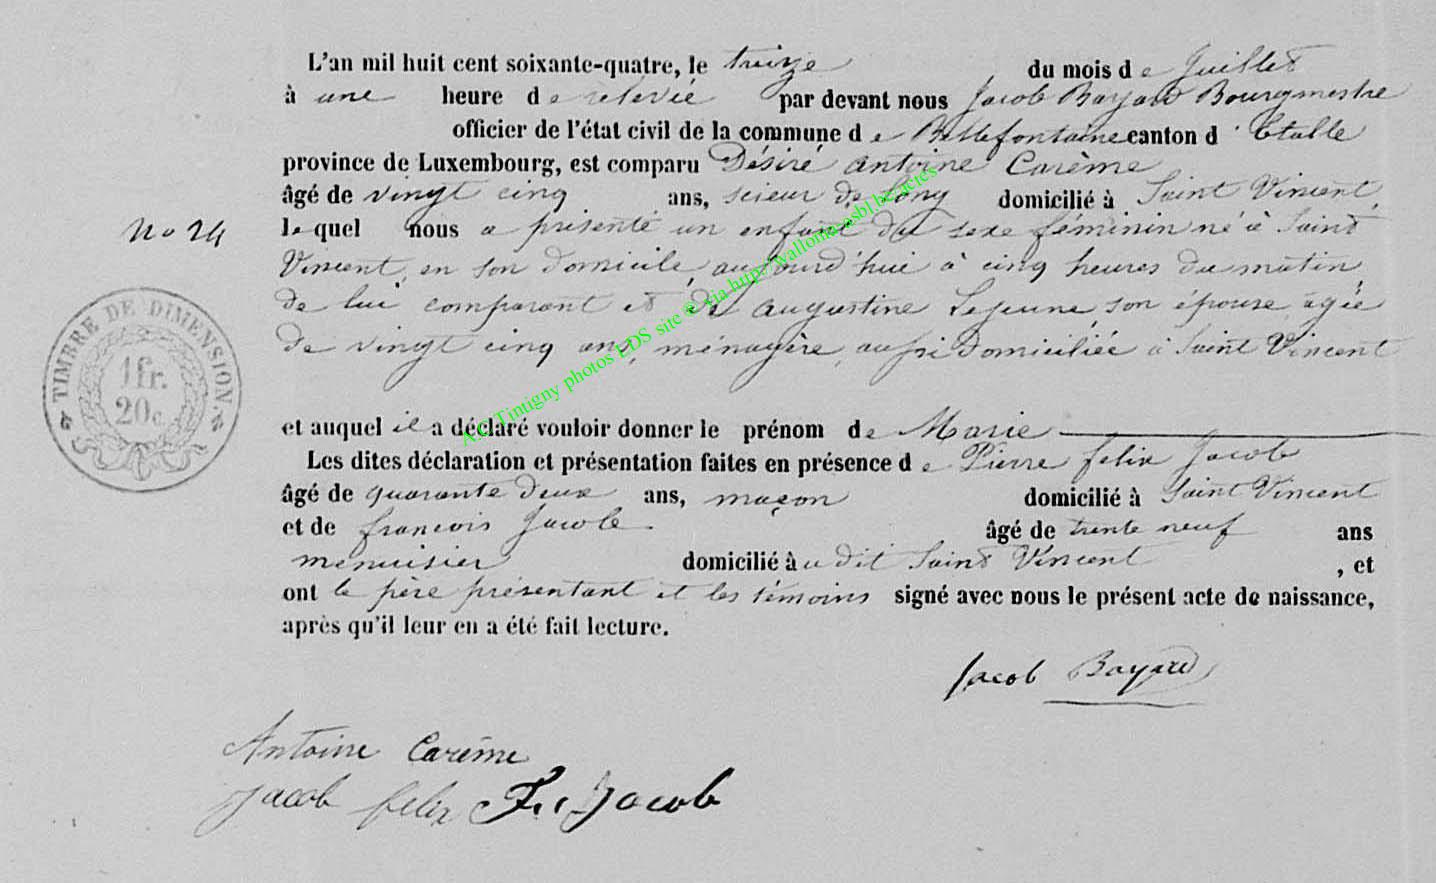 L'an mil huit cent soixante-quatre, le treize du mois de Juillet
à une heure de relevée par devant nous Jacob Bayard Bourgmestre
officier de l'état civil de la commune de Bellefontaine canton d'Etalle
province de Luxembourg, est comparu Désiré Antoine Carème
âgé de vingt cinq ans, scieur de long domicilié à Saint Vincent,
lequel nous a présenté un enfant du sexe féminin né à Saint
Vincent, en son domicile aujourd'hui à cinq heures du matin
de lui comparant et de augustine Lejeune son épouse agée
de vingt cinq ans, ménagère, aussi domiciliée à Saint Vincent
et auquel il a déclaré vouloir donner le prénom de Marie
Les dites déclaration et présentation faites en présence de Pierre felix Jacob
âgé de quarante deux ans, maçon domicilié à Saint Vincent
et de françois Jacob âgé de trente neuf ans
menuisier domicilié à u dit Saint Vincent, et
ont le père présentant et les témoins signé avec nous le présent acte de naissance,
après qu'il leur en a été fait lecture.
No 24
TIMBRE DE DIMENSION.
1 fr.
20 c.
A.C. Tintigny photos LDS site © via http://wallonia-asbl.be/actes
Jacob Bayard
Antoine Carême
Jacob felix F. Jacob